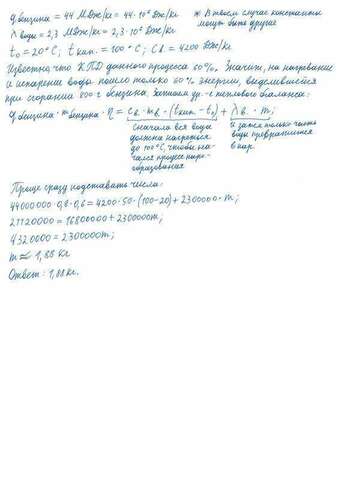 qбензина = 44 МДж/кг = 44·10⁶ Дж/кг
* В твоём случае константы могут быть другие
λводы = 2,3 МДж/кг = 2,3·10⁶ Дж/кг
t₀ = 20°C; tкип. = 100°C; cв = 4200 Дж/кг
Известно, что КПД данного процесса 60%. Значит, на нагревание
и испарение воды пошло только 60% энергии, выделившейся
при сгорании 800 г бензина. Запишем ур-е теплового баланса:
qбензина · mбензина · η = cв · mв · (tкип - t₀) + λв · m;
сначала вся вода
должна нагреться
до 100°C, чтобы на-
чался процесс паро-
образования
и затем только часть
воды превратится
в пар.
Проще сразу подставить числа:
44000000·0,8·0,6 = 4200·50·(100-20) + 2300000·m;
21120000 = 16800000 + 2300000m;
4320000 = 2300000m;
m ≈ 1,88 кг
Ответ: 1,88 кг.